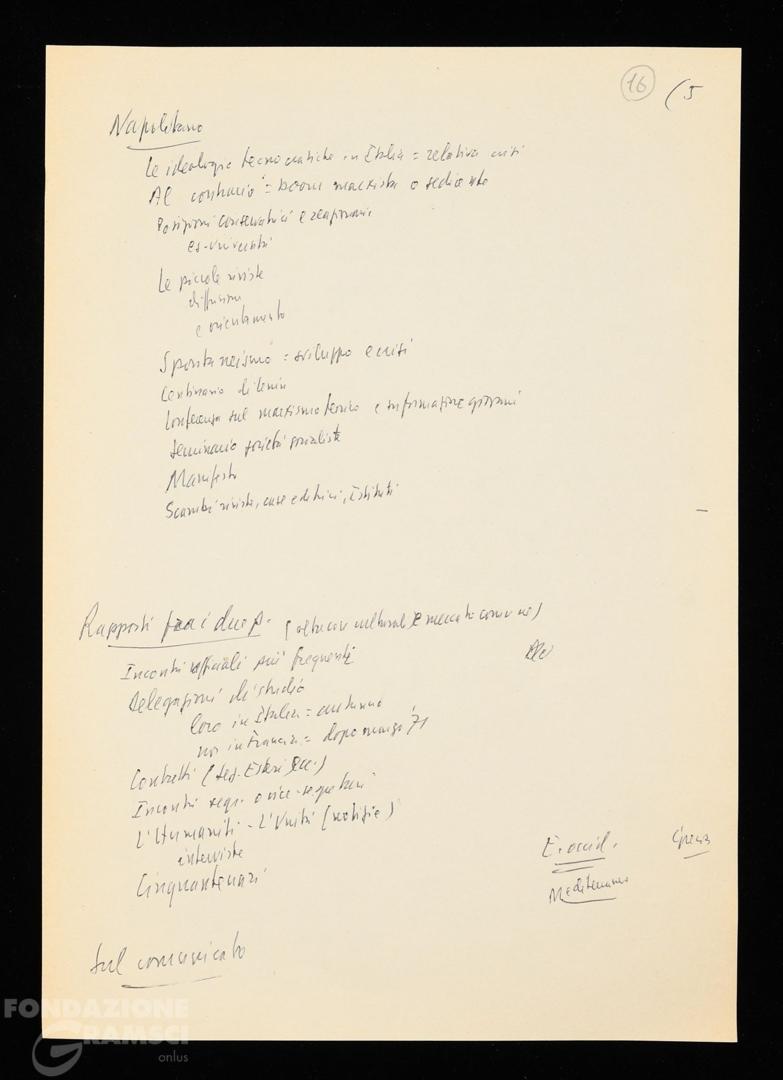 16 (5
Napolitano
Le ideologie tecnocratiche in Italia = relativa crisi
Al contrario = boom marxista o sedicente
Posizioni conservatrici e reazionarie
es. università
Le piccole riviste
diffusione
e orientamento
Spontaneismo = sviluppo e crisi
Centenario di Lenin
Conferenza sul marxismo teorico e informazione giovani
Seminario società socialiste
Manifesto
Scambi riviste, case editrici, Istituti
Rapporti fra i due p. (oltre culturali e mercato comune)
Incontri ufficiali più frequenti
Delegazioni di studio
loro in Italia = autunno
noi in Francia = dopo marzo '71
Contatti (sez. Esteri ecc.)
Incontri segr. o vice-segretari
L'Humanité - L'Unità (notizie)
interviste
Cinquantenari
E. occid.
Mediterraneo
Sul comunicato
FONDAZIONE
GRAMSCI
onlus